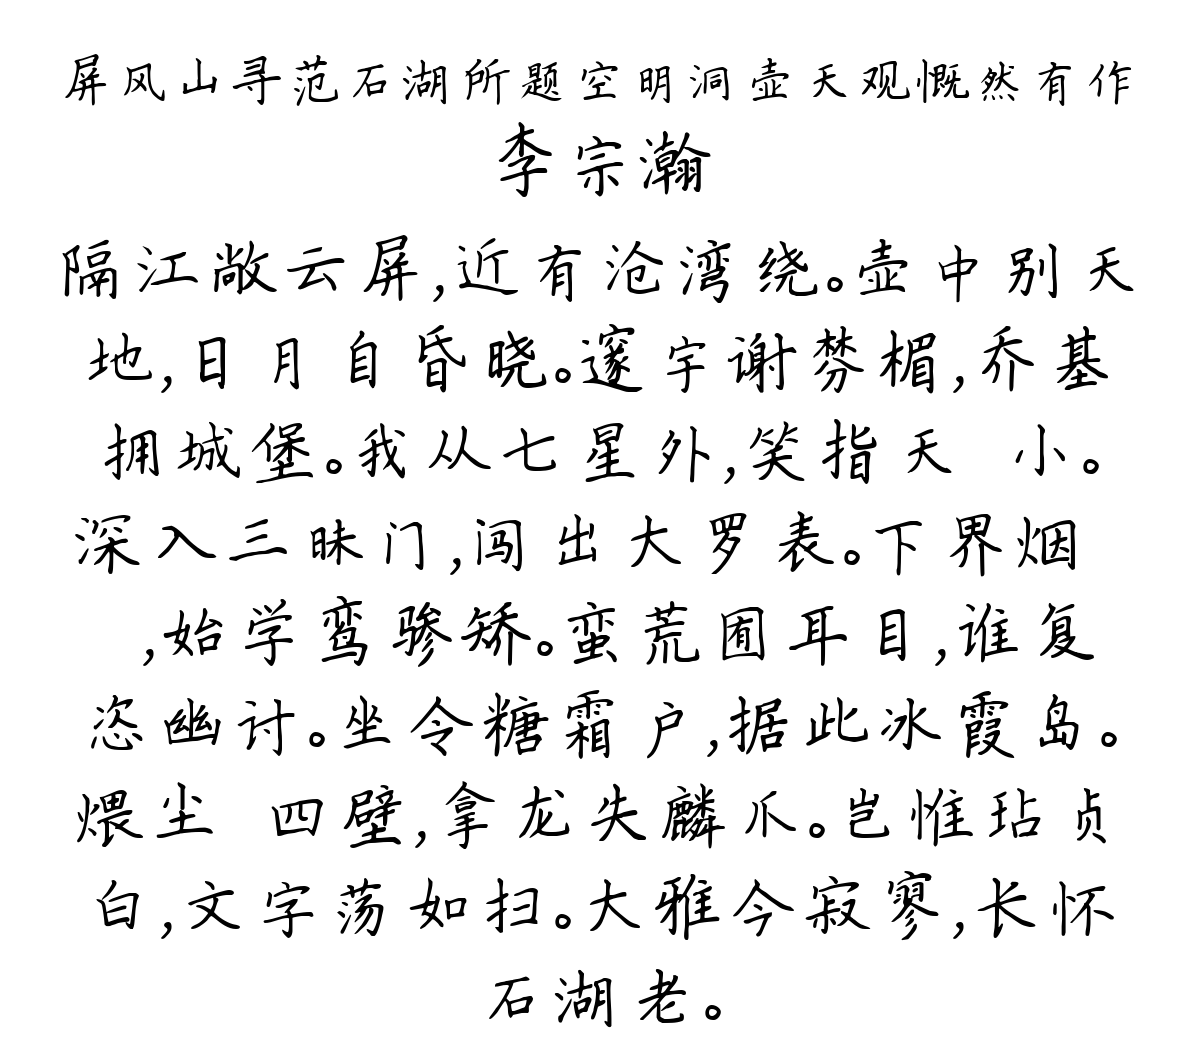 屏风山寻范石湖所题空明洞壶天观慨然有作
李宗瀚
隔江敞云屏,近有沧湾绕。壶中别天
地,日月自昏晓。邃宇谢棼楣,乔基
拥城堡。我从七星外,笑指天 小。
深入三昧门,闯出大罗表。下界烟
,始学鸾骖矫。蛮荒囿耳目,谁复
恣幽讨。坐令糖霜户,据此冰霞岛。
煨尘 四壁,拿龙失麟爪。岂惟玷贞
白,文字荡如扫。大雅今寂寥,长怀
石湖老。